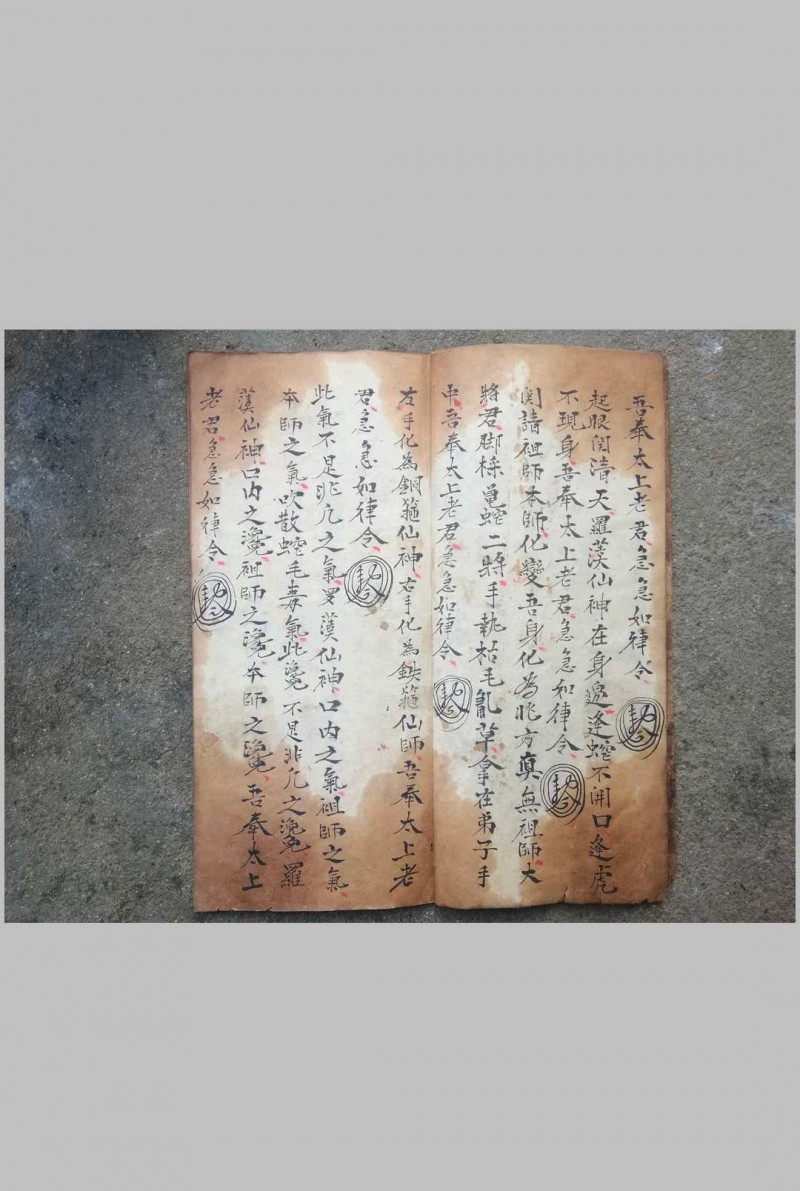 吾奉太上老君急急如律令 敕令
起眼関清天羅漢仙神在身邉逢蛇不開口逢虎
不現身吾奉太上老君急急如律令 敕令
関請祖師本師化變吾身化為北方真無祖師大
将君脚踩龟蛇二將手執枯毛亂草拿在弟子手
中吾奉太上老君急急如律令 敕令
左手化為銅箍仙神右手化為鉄箍仙師吾奉太上老
君急急如律令 敕令
此氣不是非凢之氣罗漢仙神口内之氣祖師之氣
本師之氣吹散蛇毛毒氣此㵪不是非凢之㵪羅
漢仙神口内之㵪祖師之㵪本師之㵪吾奉太上
老君急急如律令 敕令